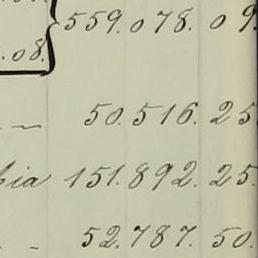 559.078.09
.08.
50.516.25
151.892.25.
52.787.50.